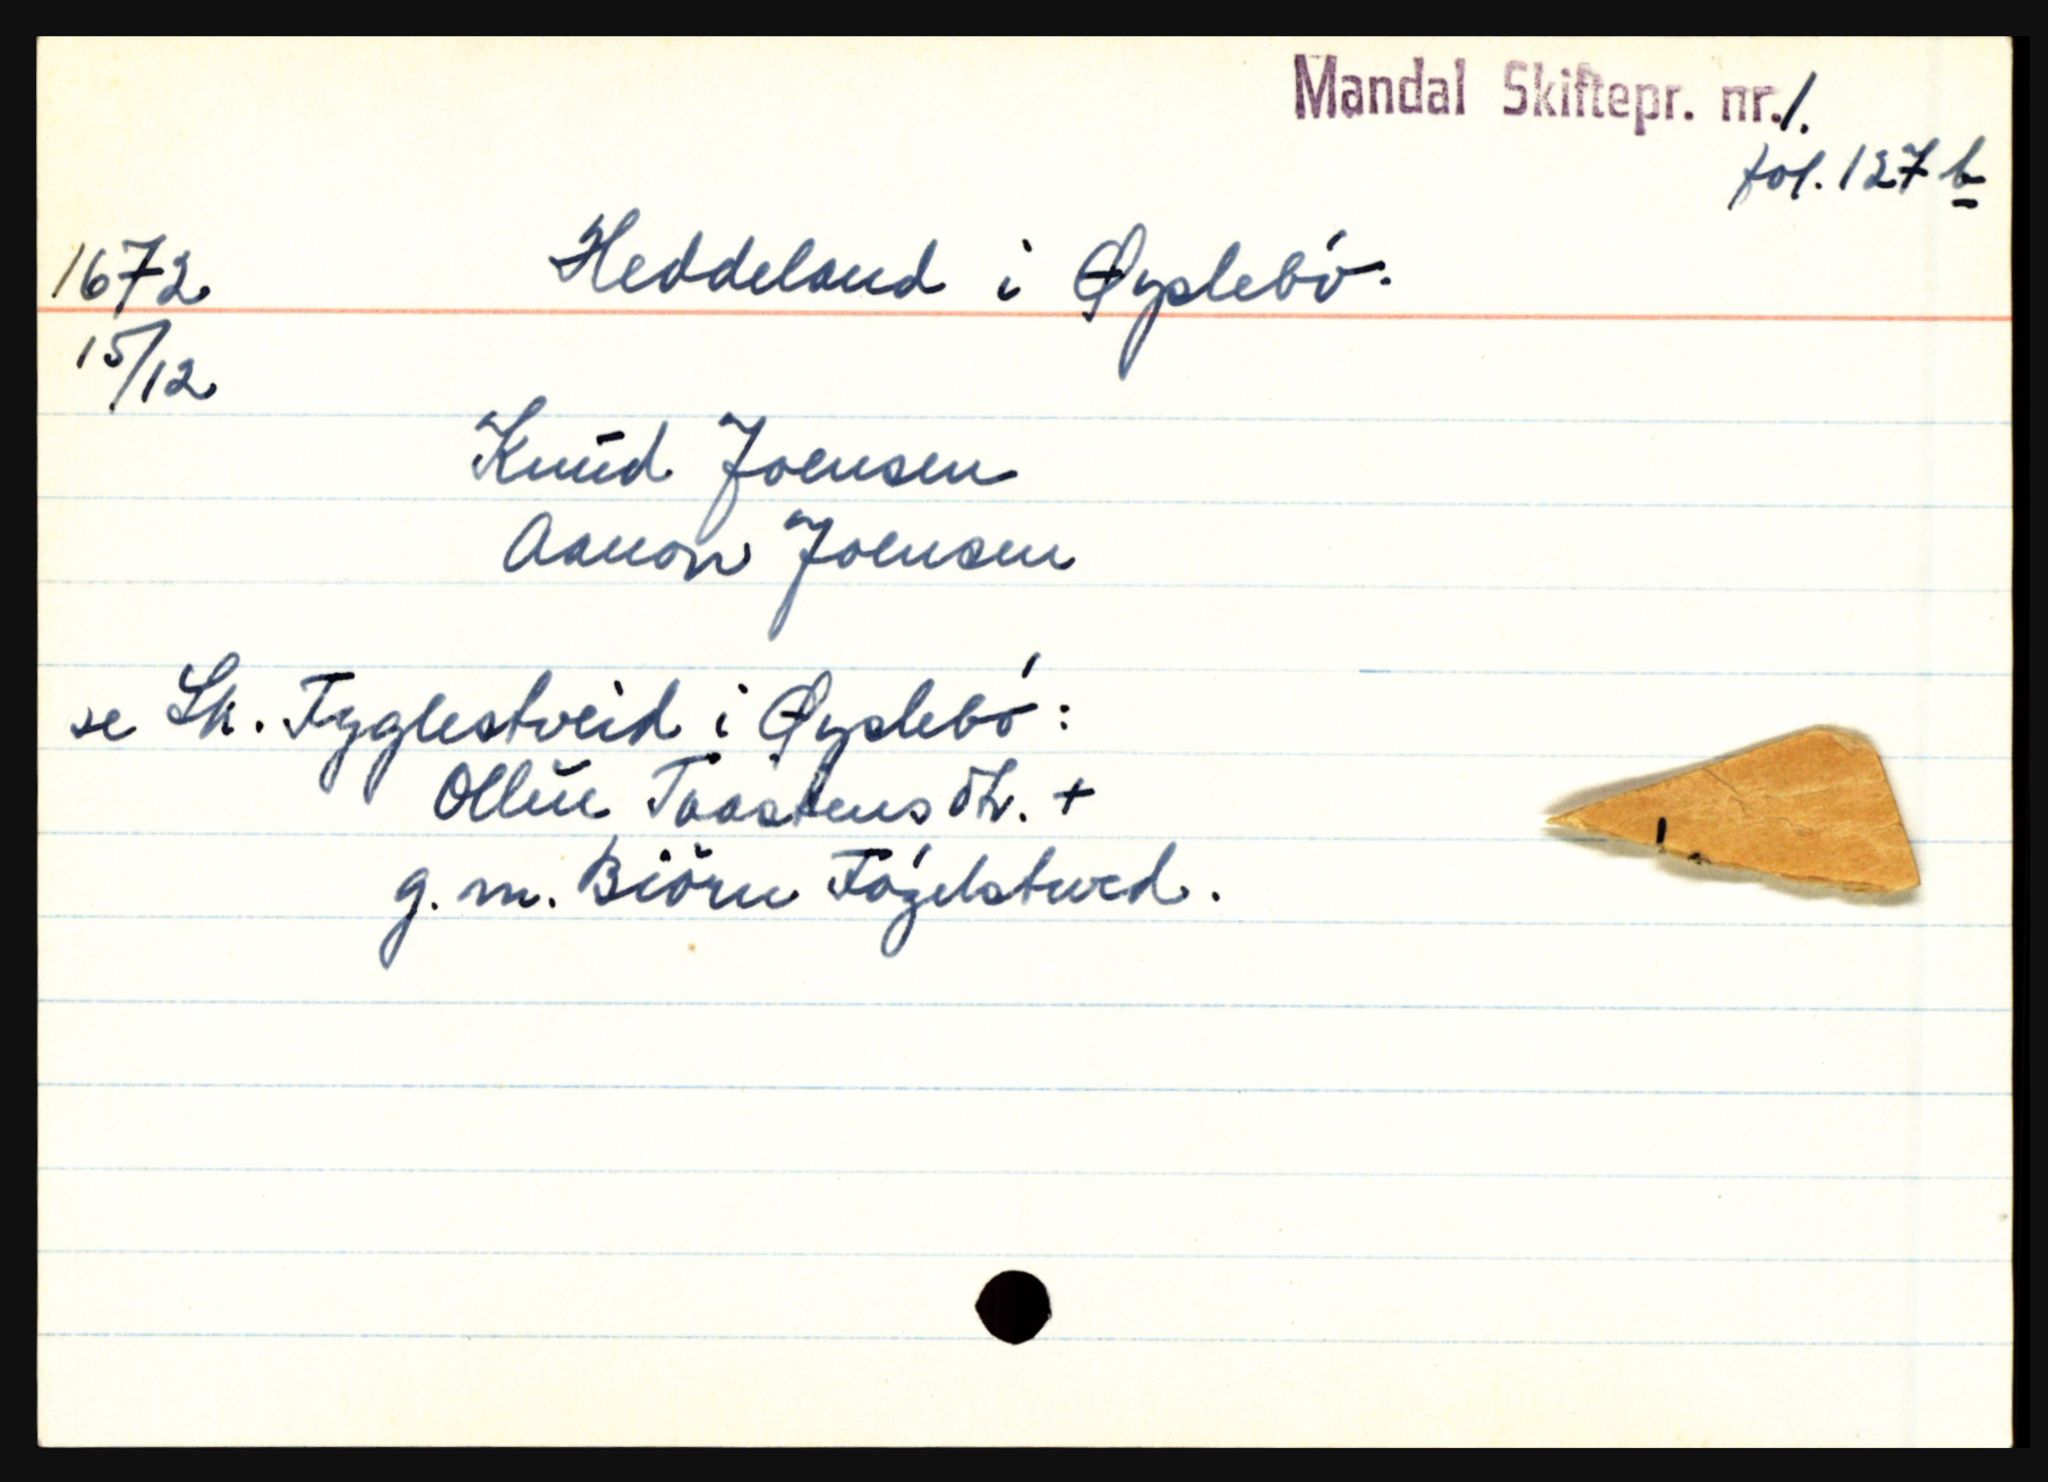 Mandal Skiftepr. nr. 1.
fol. 127 b
1672 Heddeland i Øyslebö.
15/12
Knud Joensen
Aanon Joensen
se Sk. Fyglestveid i Øyslebó:
Ollue Taastens dtr. +
g. m. Biörn Fógelstued.